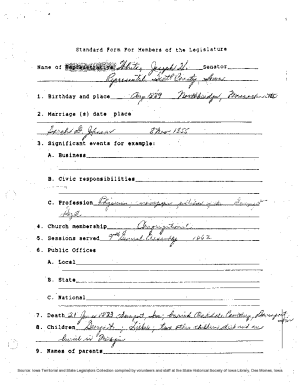 Standard Form For Members of the Legislature
Name of Representative White, Joseph H. Senator
Represented Scott County, Iowa
1. Birthday and place Aug 1829 Northbridge, Massachusetts
2. Marriage (s) date place
Sarah G. Johnson 8 Nov 1855
3. Significant events for example:
A. Business
B. Civic responsibilities
C. Profession
4. Church membership Congregational
5. Sessions served 9th General Assembly 1862
6. Public Offices
A. Local
B. State
C. National
7. Death 21 Jan 1883 Iowa; Oakdale Cemetery, Davenport
8. Children two other children died and are
buried in
9. Names of parents
Source: Iowa Territorial and State Legislators Collection compiled by volunteers and staff at the State Historical Society of Iowa Library, Des Moines, Iowa.